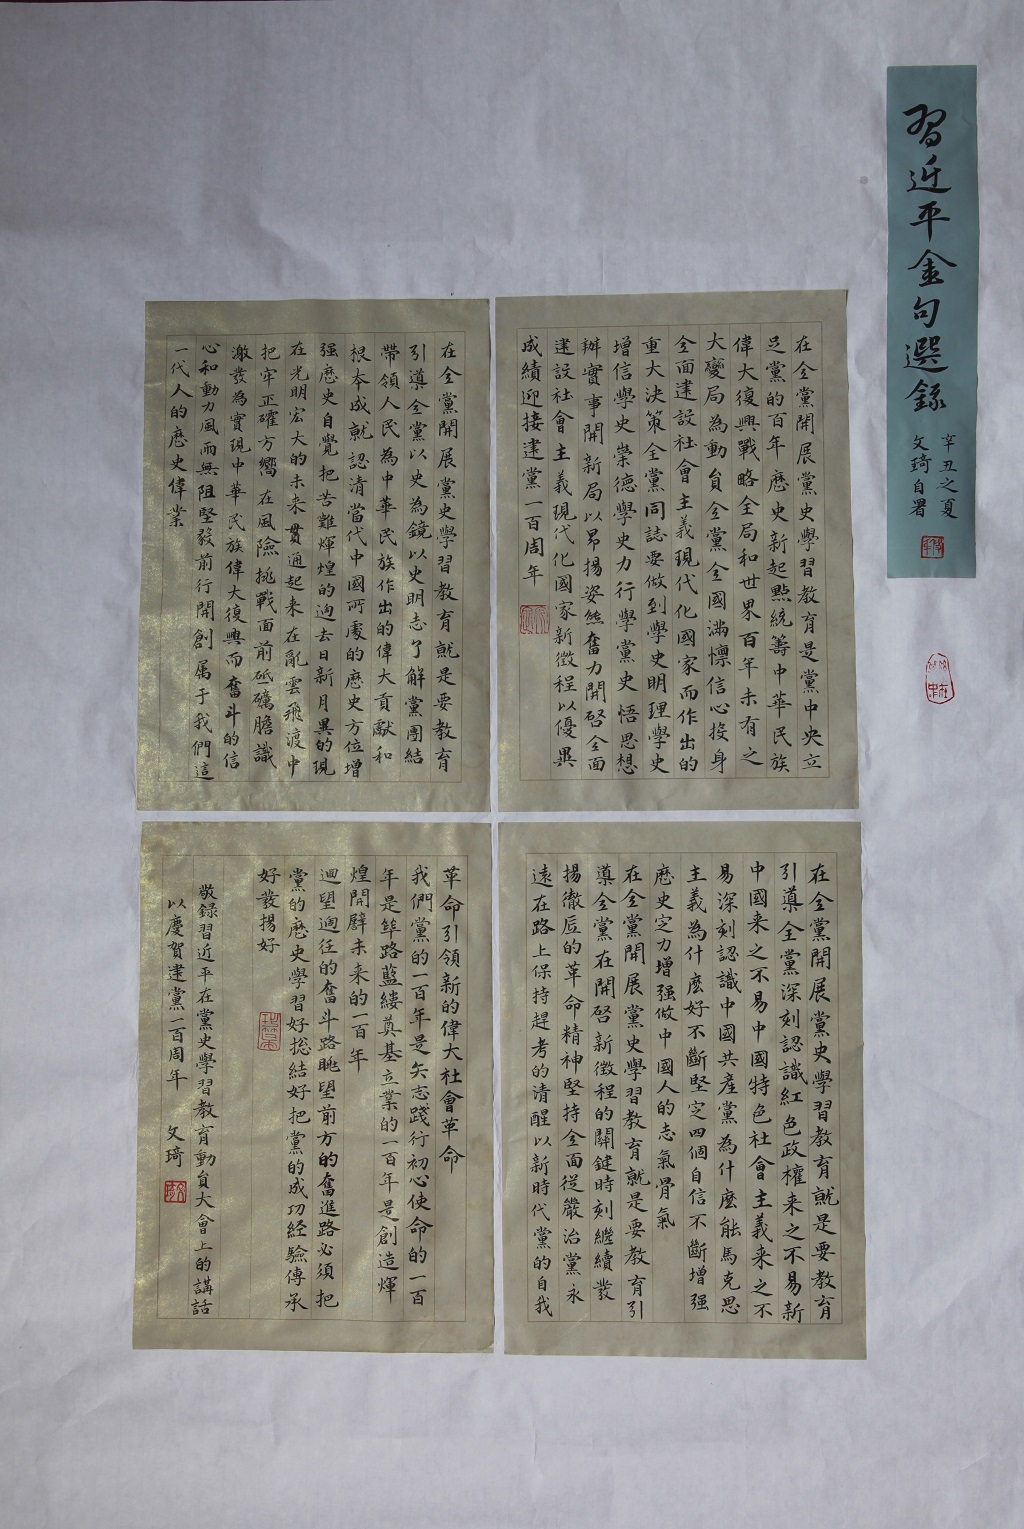 習近平金句選錄
辛丑之夏
文琦自署
在全黨開展黨史學習教育是黨中央立
足黨的百年歷史新起點統籌中華民族
偉大復興戰略全局和世界百年未有之
大變局為動員全黨全國滿懷信心投身
全面建設社會主義現代化國家而作出的
重大決策全黨同誌要做到學史明理學史
增信學史崇德學史力行學黨史悟思想
辦實事開新局以昂揚姿態奮力開啓全面
建設社會主義現代化國家新徵程以優異
成績迎接建黨一百周年
在全黨開展黨史學習教育就是要教育
引導全黨以史為鏡以史明志了解黨團結
帶領人民為中華民族作出的偉大貢獻和
根本成就認清當代中國所處的歷史方位增
强歷史自覺把苦難輝煌的過去日新月異的現
在光明宏大的未来貫通起来在亂雲飛渡中
把牢正確方嚮在風險挑戰面前砥礪膽識
激發為實現中華民族偉大復興而奮斗的信
心和動力風雨無阻堅毅前行開創属于我們這
一代人的歷史偉業
在全黨開展黨史學習教育就是要教育
引導全黨深刻認識紅色政權来之不易新
中國来之不易中國特色社會主義来之不
易深刻認識中國共産黨為什麽能馬克思
主義為什麽好不斷堅定四個自信不斷增强
歷史定力增强做中國人的志氣骨氣
在全黨開展黨史學習教育就是要教育引
導全黨在開啓新徵程的關鍵時刻繼續發
揚徹底的革命精神堅持全面從嚴治黨永
遠在路上保持趕考的清醒以新時代黨的自我
革命引領新的偉大社會革命
我們黨的一百年是矢志踐行初心使命的一百
年是篳路藍縷奠基立業的一百年是創造輝
煌開闢未来的一百年
迴望過往的奮斗路眺望前方的奮進路必須把
黨的歷史學習好總結好把黨的成功經驗傳承
好發揚好
敬録習近平在黨史學習教育動員大會上的講話
以慶賀建黨一百周年 文琦